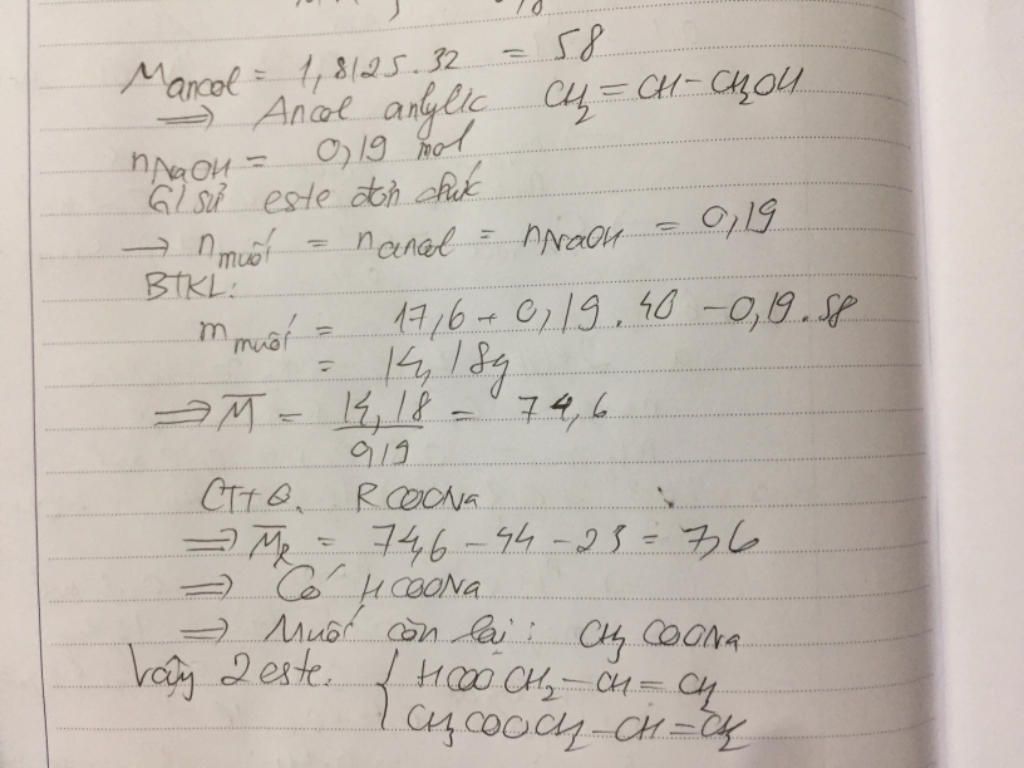 M ancol = 1,8125.32 = 58
⟹ Ancol anlylic CH2=CH-CH2OH
nNaOH = 0,19 mol
G/sử este đơn chức
→ n muối = n ancol = nNaOH = 0,19
BTKL:
m muối = 17,6 + 0,19.40 - 0,19.58
= 14,18g
⟹ M̅ = 14,18 / 0,19 = 74,6
CTTQ. RCOONa
⟹ M̅R = 74,6 - 44 - 23 = 7,6
⟹ Có HCOONa
⟹ Muối còn lại: CH3COONa
Vậy 2 este. { HCOOCH2-CH=CH2
CH3COOCH2-CH=CH2